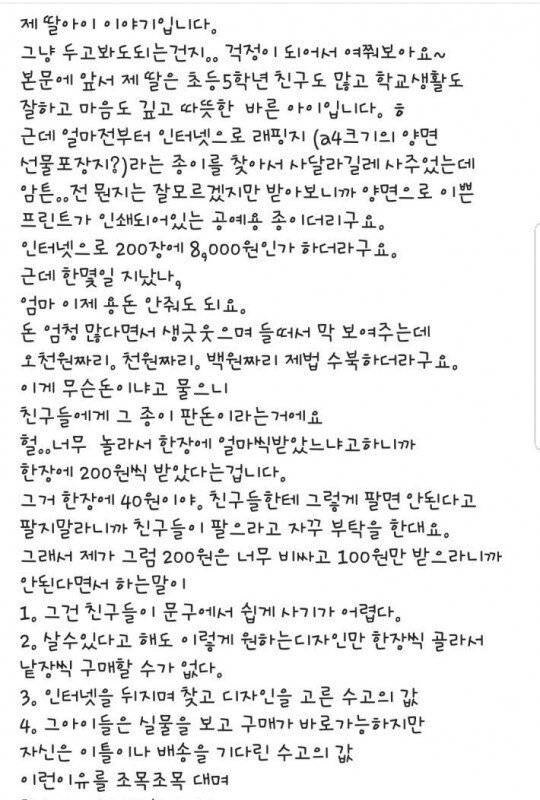 제 딸아이 이야기입니다.
그냥 두고봐도되는건지.. 걱정이 되어서 여쭤보아요~
본문에 앞서 제 딸은 초등5학년 친구도 많고 학교생활도
잘하고 마음도 깊고 따뜻한 바른 아이입니다. ㅎ
근데 얼마전부터 인터넷으로 래핑지 (a4크기의 양면
선물포장지?)라는 종이를 찾아서 사달라길레 사주었는데
암튼..전 뭔지는 잘모르겠지만 받아보니까 양면으로 이쁜
프린트가 인쇄되어있는 공예용 종이더리구요.
인터넷으로 200장에 8,000원인가 하더라구요.
근데 한몇일 지났나,
엄마 이제 용돈 안줘도 되요.
돈 엄청 많다면서 생긋웃으며 들떠서 막 보여주는데
오천원짜리. 천원짜리. 백원짜리 제법 수북하더라구요.
이게 무슨돈이냐고 물으니
친구들에게 그 종이 판돈이라는거에요
헐..너무 놀라서 한장에 얼마씩받았느냐고하니까
한장에 200원씩 받았다는겁니다.
그거 한장에 40원이야. 친구들한테 그렇게 팔면 안된다고
팔지말라니까 친구들이 팔으라고 자꾸 부탁을 한대요.
그래서 제가 그럼 200원은 너무 비싸고 100원만 받으라니까
안된다면서 하는말이
1. 그건 친구들이 문구에서 쉽게 사기가 어렵다.
2. 살수있다고 해도 이렇게 원하는디자인만 한장씩 골라서
낱장씩 구매할 수가 없다.
3. 인터넷을 뒤지며 찾고 디자인을 고른 수고의 값
4. 그아이들은 실물을 보고 구매가 바로가능하지만
자신은 이틀이나 배송을 기다린 수고의 값
이런이유를 조목조목 대며